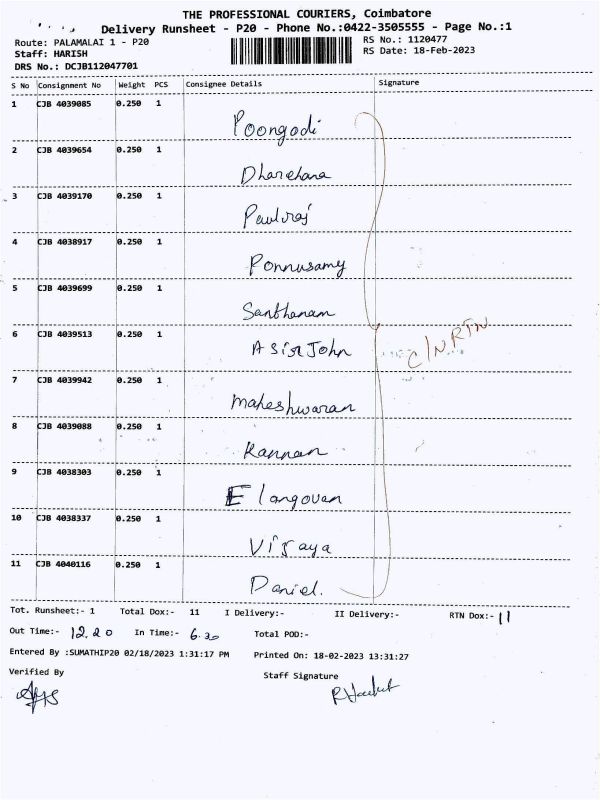 THE PROFESSIONAL COURIERS, Coimbatore
Delivery Runsheet - P20 - Phone No.:0422-3505555 - Page No.:1
Route: PALAMALAI 1 - P20
Staff: HARISH
DRS No.: DCJB112047701
RS No.: 1120477
RS Date: 18-Feb-2023
S No Consignment No Weight PCS Consignee Details Signature
1 CJB 4039085 0.250 1 Poongodi
2 CJB 4039654 0.250 1
3 CJB 4039170 0.250 1 Paulraj
4 CJB 4038917 0.250 1 Ponnusamy
5 CJB 4039699 0.250 1 Santhanam
6 CJB 4039513 0.250 1 Asir John C/N RTN
7 CJB 4039942 0.250 1 Maheshwaran
8 CJB 4039088 0.250 1 Kannan
9 CJB 4038303 0.250 1 Elangovan
10 CJB 4038337 0.250 1 Vijaya
11 CJB 4040116 0.250 1 Daniel.
Tot. Runsheet:- 1 Total Dox:- 11 I Delivery:- II Delivery:- RTN Dox:- 11
Out Time:- 12.20 In Time:- 6.30 Total POD:-
Entered By :SUMATHIP20 02/18/2023 1:31:17 PM Printed On: 18-02-2023 13:31:27
Verified By Staff Signature